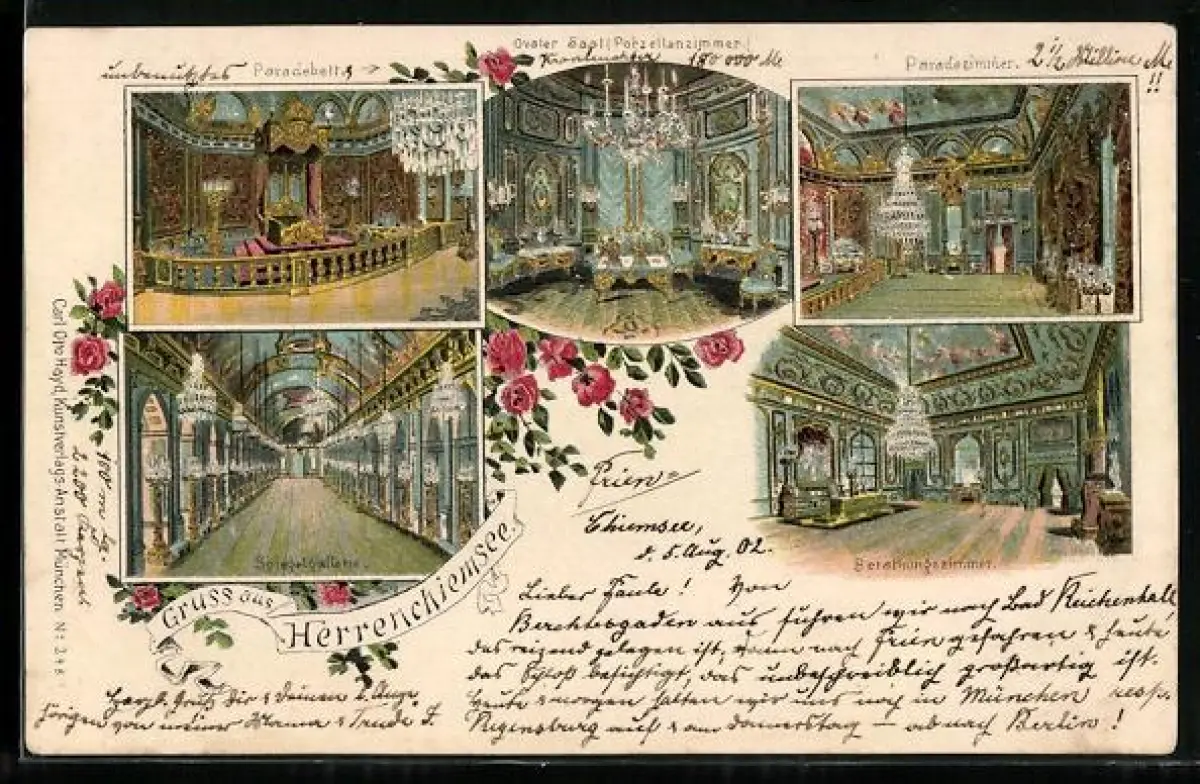 Ovaler Saal (Porzellanzimmer.)
unbenutztes Paradebett
180 000 M
Paradezimmer. 2 1/2 Million M !!
Carl Otto Hayd, Kunstverlags-Anstalt München. No 248
100 m lg.
2200
Spiegelgallerie.
Berathungszimmer.
Gruss aus
Herrenchiemsee.
Prien
Chiemsee,
d. 5. Aug. 02.
Lieber Paule! Von
Berchtesgaden aus fuhren wir nach Bad Reichenhall
das reizend gelegen ist, dann nach Prien gefahren & heute
das Schloß besichtigt, das unbeschreiblich großartig ist.
Heute & morgen halten wir uns noch in München resp.
Regensburg auf & am Donnerstag – ab nach Berlin!
Herzl. Gruß Dir & Deinen l. Ange-
hörigen von meiner Mama & Trude